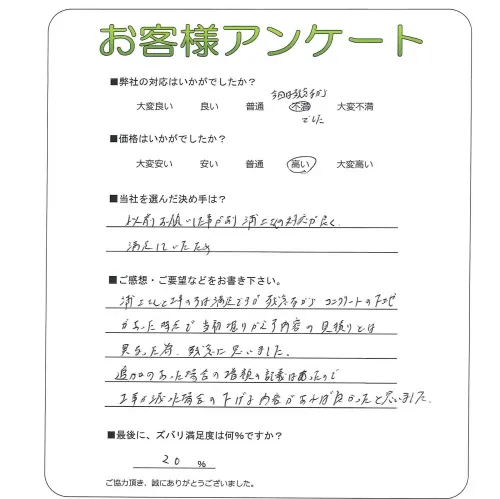 お客様アンケート
■弊社の対応はいかがでしたか？
今回は残念ながら
大変良い 良い 普通 不満 大変不満
でした
■価格はいかがでしたか？
大変安い 安い 普通 高い 大変高い
■当社を選んだ決め手は？
以前お願いした事があり 浦上さんの対応が良く、
満足していたため
■ご感想・ご要望などをお書き下さい。
浦上さんと工事の方は満足ですが 残念ながら コンクリートの下地
があった時点で当初 内容の見積りとは
異なった為、残念に思いました。
追加のあった場合の増額の記載はあったので
工事が減った場合の下げる内容があれば良かったと思いました。
■最後に、ズバリ満足度は何％ですか？
20 ％
ご協力頂き、誠にありがとうございました。